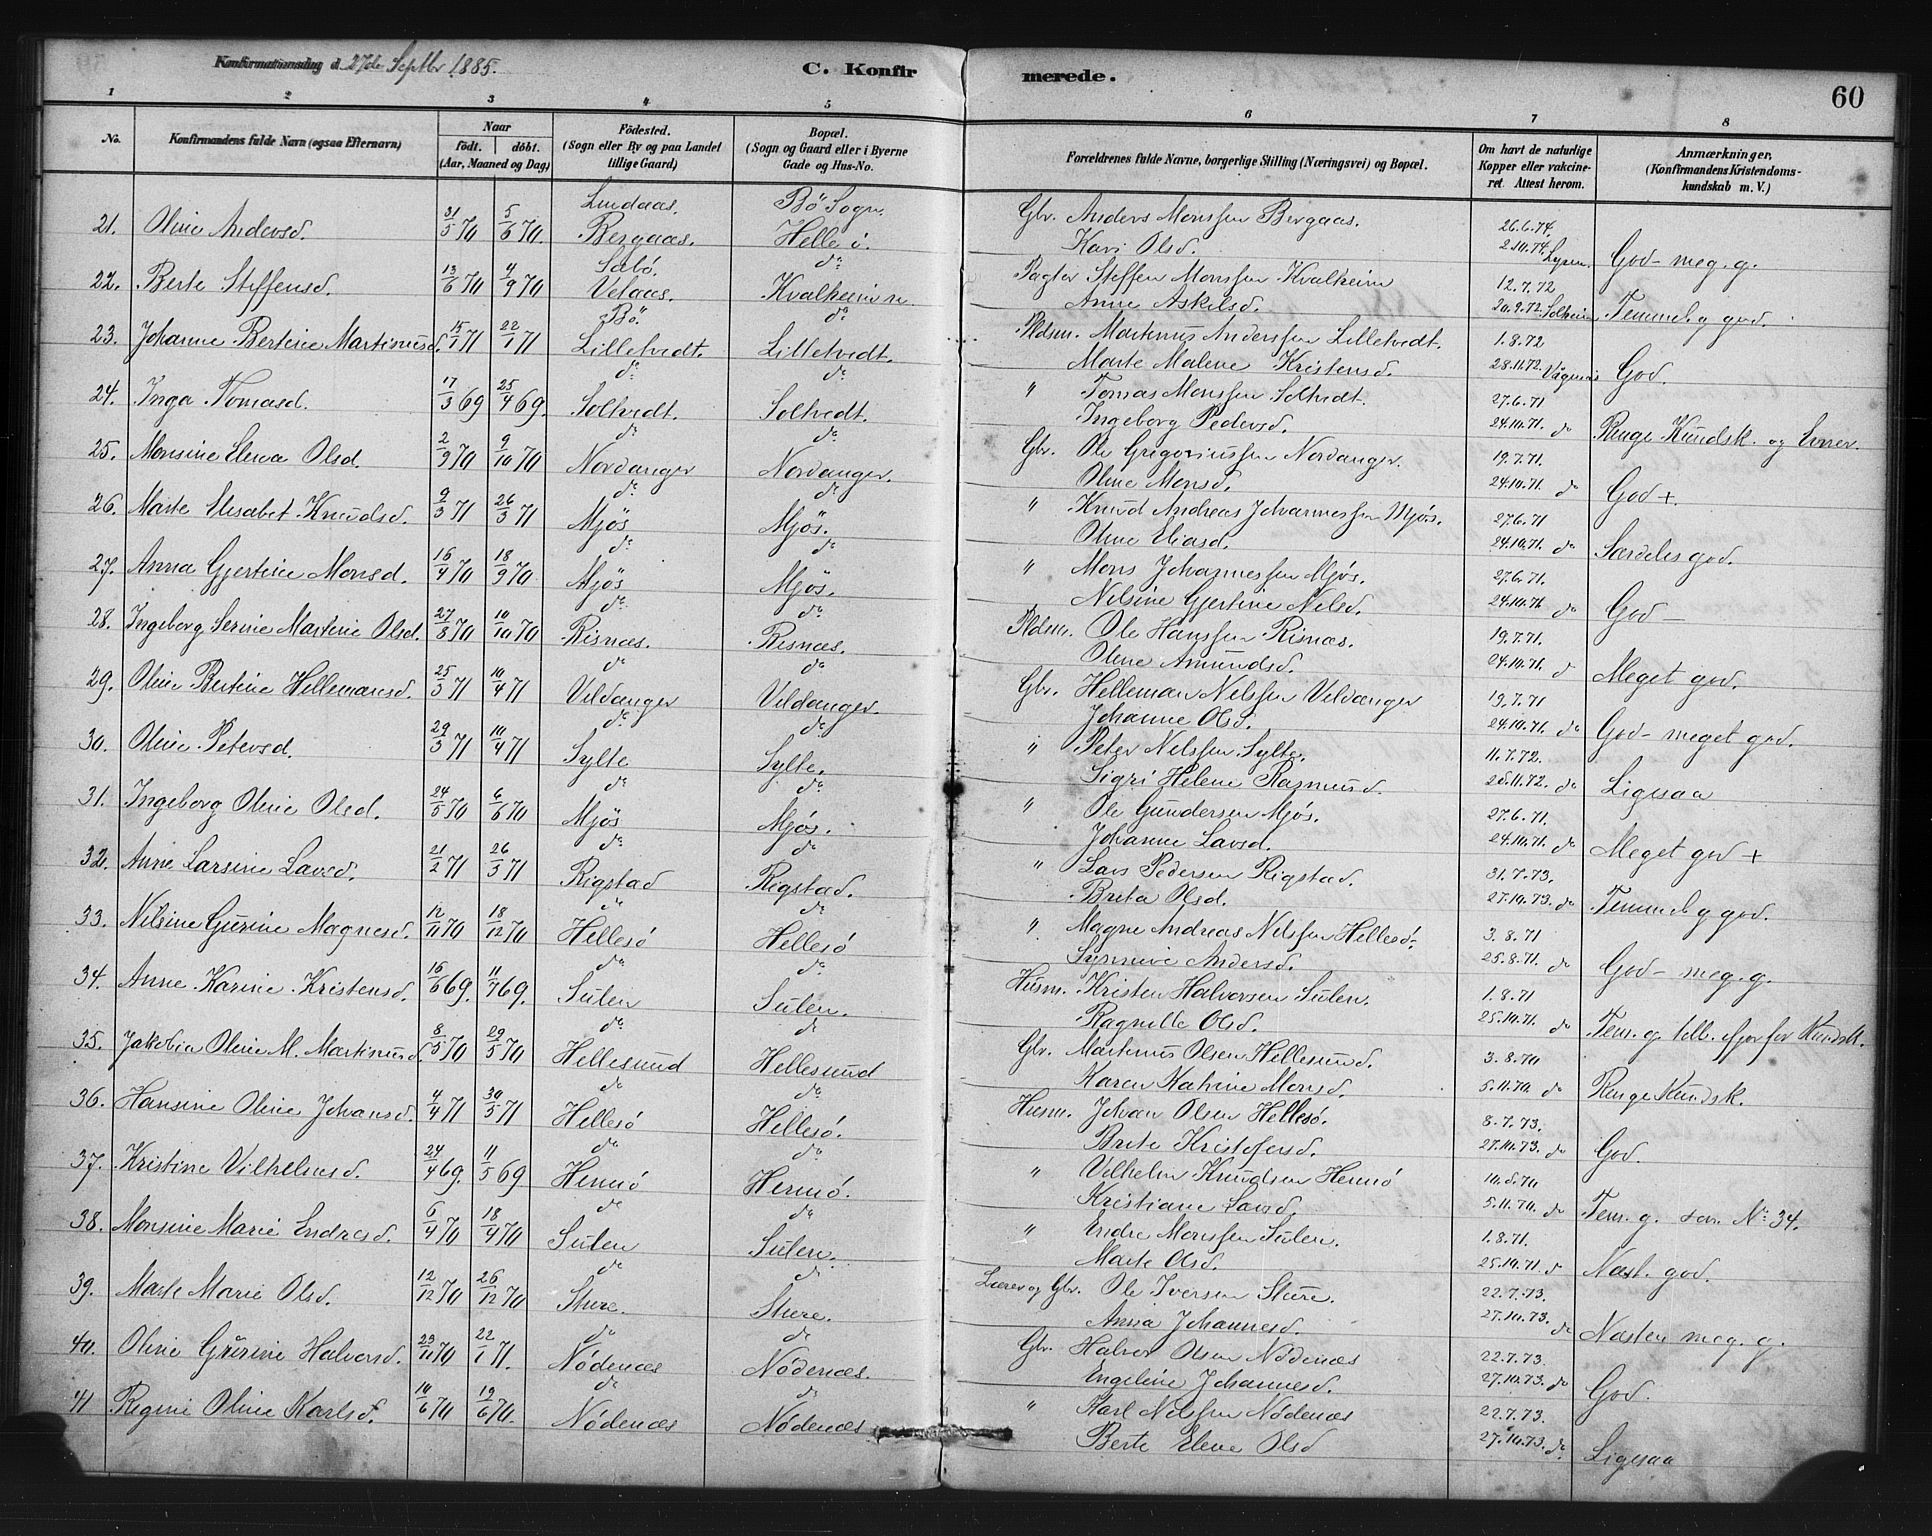 Konfirmationsdag d. 27de Septbr 1885.
C. Konfirmerede.
60
1 2 3 4 5 6 7 8
No.
Konfirmandens fulde Navn (ogsaa Efternavn)
Naar
født. døbt.
(Aar, Maaned og Dag)
Fødested.
(Sogn eller By og paa Landet
tillige Gaard)
Bopæl.
(Sogn og Gaard eller i Byerne
Gade og Hus-No.
Forældrenes fulde Navne, borgerlige Stilling (Næringsvei) og Bopæl.
Om havt de naturlige
Kopper eller vakcine-
ret. Attest herom.
Anmærkninger.
(Konfirmandens Kristendoms-
kundskab m. V.)
Lindaas. Bö Sogn. Gbr. Anders Monssen Bergaas. 26.6.74.
21. Oline Andersd. 31/5 70 5/6 70. Bergaas. Helle i. Kari Olsd. 2.10.74. God - meg. g.
Sæbö. do Pagter Steffen Monssen Kvalheim 12.7.72
22. Berte Steffensd. 13/6 70 4/9 70 Velaas. Kvalheim Anne Askilsd. 20.9.72. Solheim Temmelig god.
Bö. do Pldsm. Martinus Anderssen Lilletvedt. 1.8.72
23. Johanne Bertine Martinusd. 15/1 71 22/1 71 Lilletvedt. Lilletvedt. Marte Malene Kristensd. 28.11.72. God.
do do " Tomas Monssen Soltvedt. 27.6.71
24. Inga Tomasd. 17/3 69 25/4 69. Soltvedt. Soltvedt. Ingeborg Pedersd. 24.10.71. do Ringe Kundsk. og Evner.
do do Gbr. Ole Gregoriussen Nordanger. 19.7.71.
25. Monsine Elena Olsd. 2/9 70 9/10 70 Nordanger Nordanger. Oline Monsd. 24.10.71. do God +
do do " Knud Andreas Johannessen Mjös. 27.6.71
26. Marte Elisabet Knudsd. 9/3 71 26/3 71 Mjös Mjös. Oline Eliasd. 24.10.71. do Særdeles god.
do do " Mons Johannessen Mjös. 27.6.71.
27. Anna Gjertine Monsd. 16/4 70 18/9 70 Mjös Mjös. Nilsine Gjertine Nilsd. 24.10.71 do God -
do do Pldsm. Ole Hanssen Risnæs. 19.7.71.
28. Ingeborg Serine Martine Olsd. 27/8 70 10/10 70 Risnæs. Risnæs. Oline Amundsd. 24.10.71. d Meget god.
do do Gbr. Helleman Nilssen Vildanger 19.7.71
29. Oline Bertine Hellemansd. 25/3 71 10/4 71 Vildanger Vildanger. Johanne Olsd. 24.10.71. do God - meget god.
do do " Peter Nilssen Sylte. 11.7.72.
30. Oline Petersd. 29/3 71 10/4 71 Sylte Sylte. Sigri Helene Rasmusd. 28.11.72. do Ligesaa
do do " Ole Gundersen Mjös. 27.6.71.
31. Ingeborg Oline Olsd. 24/5 70 6/6 70 Mjös Mjös. Johanne Larsd. 24.10.71. do Meget god +
do do " Lars Pedersen Rigstad. 31.7.73.
32. Anne Larsine Larsd. 21/2 71 26/3 71 Rigstad Rigstad. Brita Olsd. 27.10.73. do Temmelig god.
do do " Magne Andreas Nilssen Hellesö. 3.8.71
33. Nilsine Gurine Magnesd. 12/11 70 18/12 70 Hellesö Hellesö Synneve Andersd. 25.8.71. do God - meg. g.
do do Husm. Kristen Halvorsen Sulen. 1.8.71
34. Anne Karine Kristensd. 16/6 69. 11/7 69. Sulen Sulen. Ragnille Olsd. 25.10.71. do Tem. g. Kundsk.
do do Gbr. Martinus Olsen Hellesund. 3.8.70
35. Jakobia Oline M. Martinusd. 8/5 70 29/5 70 Hellesund Hellesund Karen Katrine Monsd. 5.11.70. do Ringe Kundsk.
do do Husm. Johan Olsen Hellesö. 8.7.73.
36. Hansine Oline Johansd. 4/4 71 30/5 71 Hellesö Hellesö. Brite Kristofersd. 27.10.73. do God.
do do " Vilhelm Knudsen Hernö 10.8.70
37. Kristine Vilhelmsd. 24/4 69. 11/5 69 Hernö Hernö. Kristiane Larsd. 5.11.70. do Tem. g. som No 34.
do do " Endre Monssen Sulen. 1.8.71.
38. Monsine Marie Endresd. 6/4 70 18/4 70 Sulen Sulen. Marte Olsd. 25.10.71 d Næst. god.
do do Lærer og Gbr. Ole Iversen Sture. 22.7.73.
39. Marte Marie Olsd. 12/12 70 26/12 70 Sture. Sture. Anna Johannesd. 27.10.73. do Næsten meg. g.
do do Gbr. Halvor Olsen Nödenæs 22.7.73.
40. Oline Gurine Halvorsd. 23/11 70 22/1 71. Nödenæs Nödenæs. Engeline Johannesd. 27.10.73. do God.
do do " Karl Nilssen Nödenæs 22.7.73.
41 Regine Oline Karlsd. 10/6 70 19/6 70. Nödenæs Nödenæs Berte Elene Olsd 27.10.73. do. Ligesaa